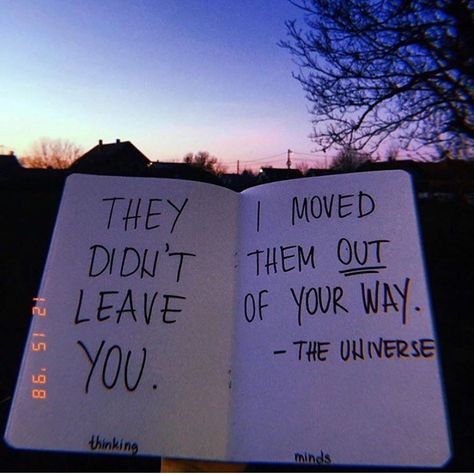 THEY
DIDN'T
LEAVE
YOU.
thinking
I MOVED
THEM OUT
OF YOUR WAY.
- THE UNIVERSE
minds
12 15 '98